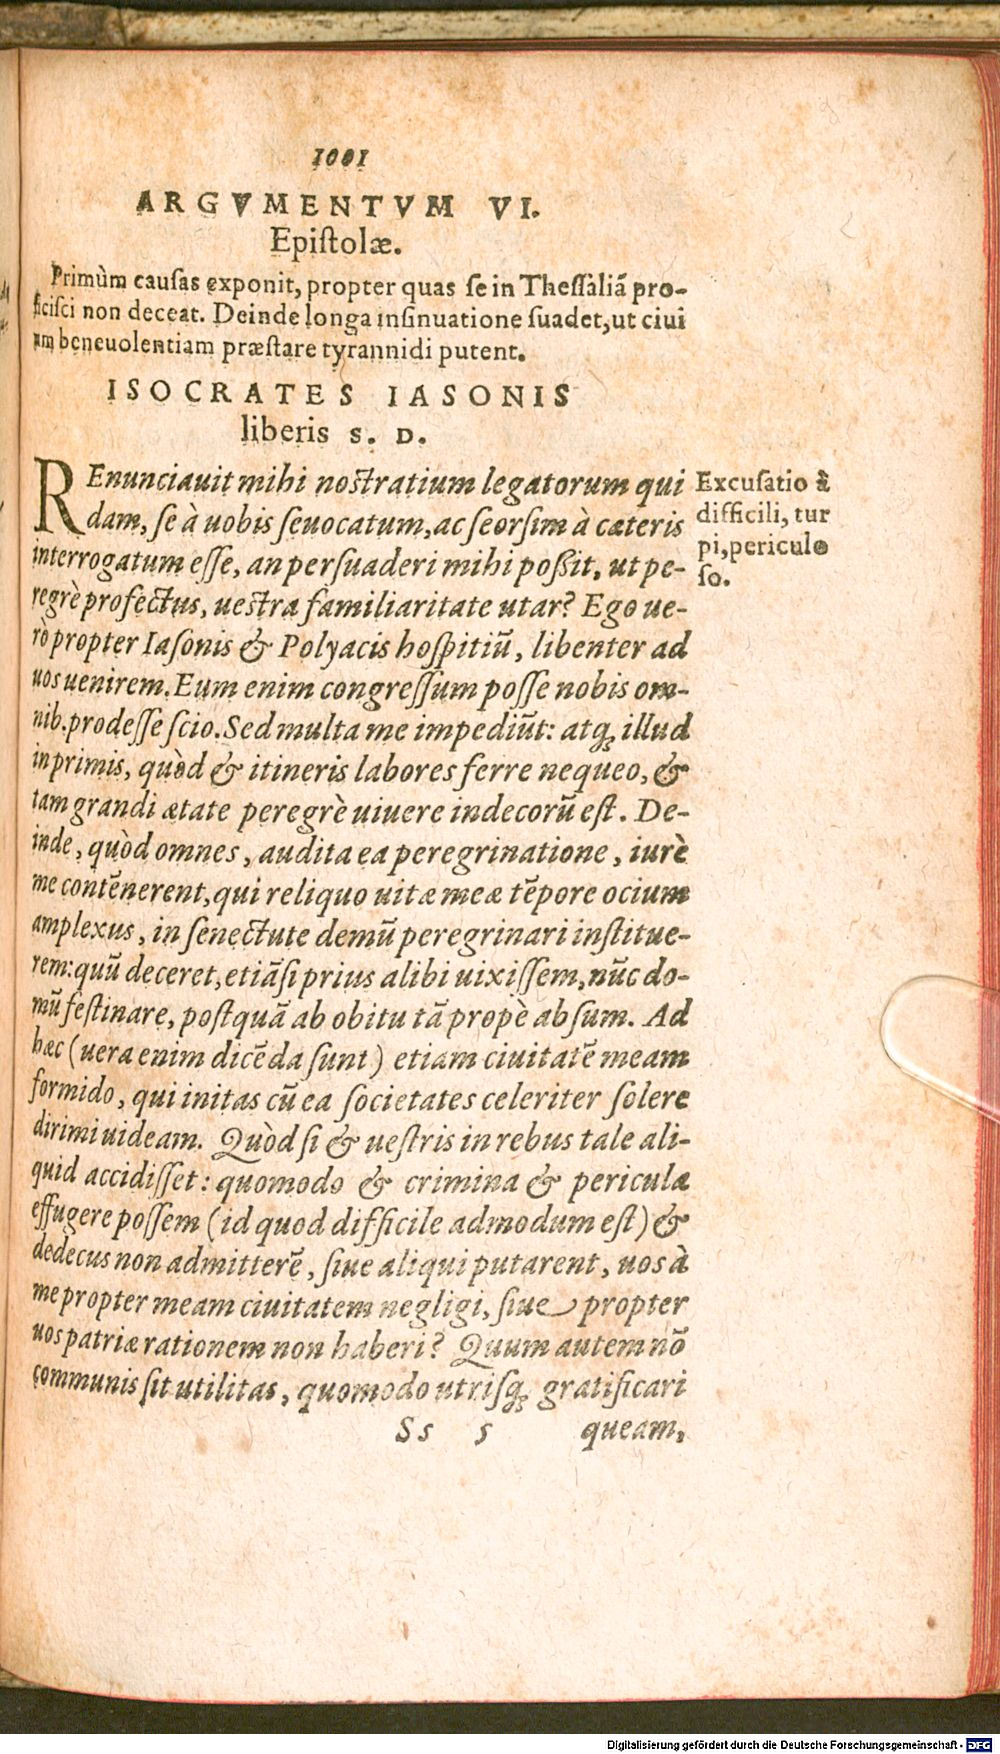 1001
ARGVMENTVM VI.
Epiſtolæ.
Primùm cauſas exponit, propter quas ſe in Theſſaliã pro-
ficiſci non deceat. Deinde longa inſinuatione ſuadet, ut ciui
um beneuolentiam præſtare tyrannidi putent.
ISOCRATES IASONIS
liberis S. D.
REnunciauit mihi noſtratium legatorum qui
dam, ſe à uobis ſeuocatum, ac ſeorſim à cæteris
interrogatum eſſe, an perſuaderi mihi poßit, ut pe-
regrè profectus, ueſtra familiaritate utar? Ego ue-
rò propter Iaſonis & Polyacis hoſpitiũ, libenter ad
uos uenirem. Eum enim congreſſum poſſe nobis om-
nib. prodeſſe ſcio. Sed multa me impediũt: atq; illud
in primis, quòd & itineris labores ferre nequeo, &
tam grandi ætate peregrè uiuere indecorũ eſt. De-
inde, quòd omnes, audita ea peregrinatione, iurè
me contẽnerent, qui reliquo uitæ meæ tẽpore ocium
amplexus, in ſenectute demũ peregrinari inſtitue-
rem: quũ deceret, etiãſi prius alibi uixiſſem, nũc do-
mũ feſtinare, poſtquã ab obitu tã propè abſum. Ad
hæc (uera enim dicẽda ſunt) etiam ciuitatẽ meam
formido, qui initas cũ ea ſocietates celeriter ſolere
dirimi uideam. Quòd ſi & ueſtris in rebus tale ali-
quid accidiſſet: quomodo & crimina & pericula
effugere poſſem (id quod difficile admodum eſt) &
dedecus non admitterẽ, ſiue aliqui putarent, uos à
me propter meam ciuitatem negligi, ſiue propter
uos patriæ rationem non haberi? Quum autem nõ
communis ſit utilitas, quomodo utriſq; gratificari
Ss 5 queam,
Excuſatio à
difficili, tur
pi, periculo
ſo.
Digitalisierung gefördert durch die Deutsche Forschungsgemeinschaft - DFG